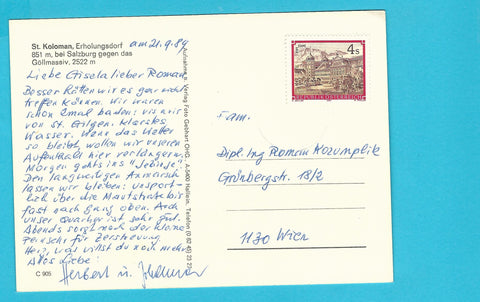 St. Koloman, Erholungsdorf
851 m, bei Salzburg gegen das
Göllmassiv, 2522 m
am 21.9.84
Liebe Gisela lieber Roman
Besser hätten wir es gar nicht
treffen können. Wir waren
schon 2mal baden: vis a vis
von St. Gilgen. Klarstes
Wasser. Wenn das Wetter
so bleibt wollen wir unseren
Aufenthalt hier verlängern.
Morgen gehts ins
Den langweiligen Anmarsch
lassen wir bleiben: unsport-
lich über die Mautstraße bis
fast nach ganz oben. Auch
unser Quartier ist sehr gut.
Abends sorgt noch der kleine
Fernseher für Zerstreuung
Herz, was willst du noch mehr
Alles Liebe:
Herbert u.
C 905
Verlag Foto Gebhart OHG, A-5400 Hallein, Telefon
4 S
REPUBLIK ÖSTERREICH
Fam.
Dipl. Ing Roman Kozumplik
Grünbergstr. 18/2
1130 Wien